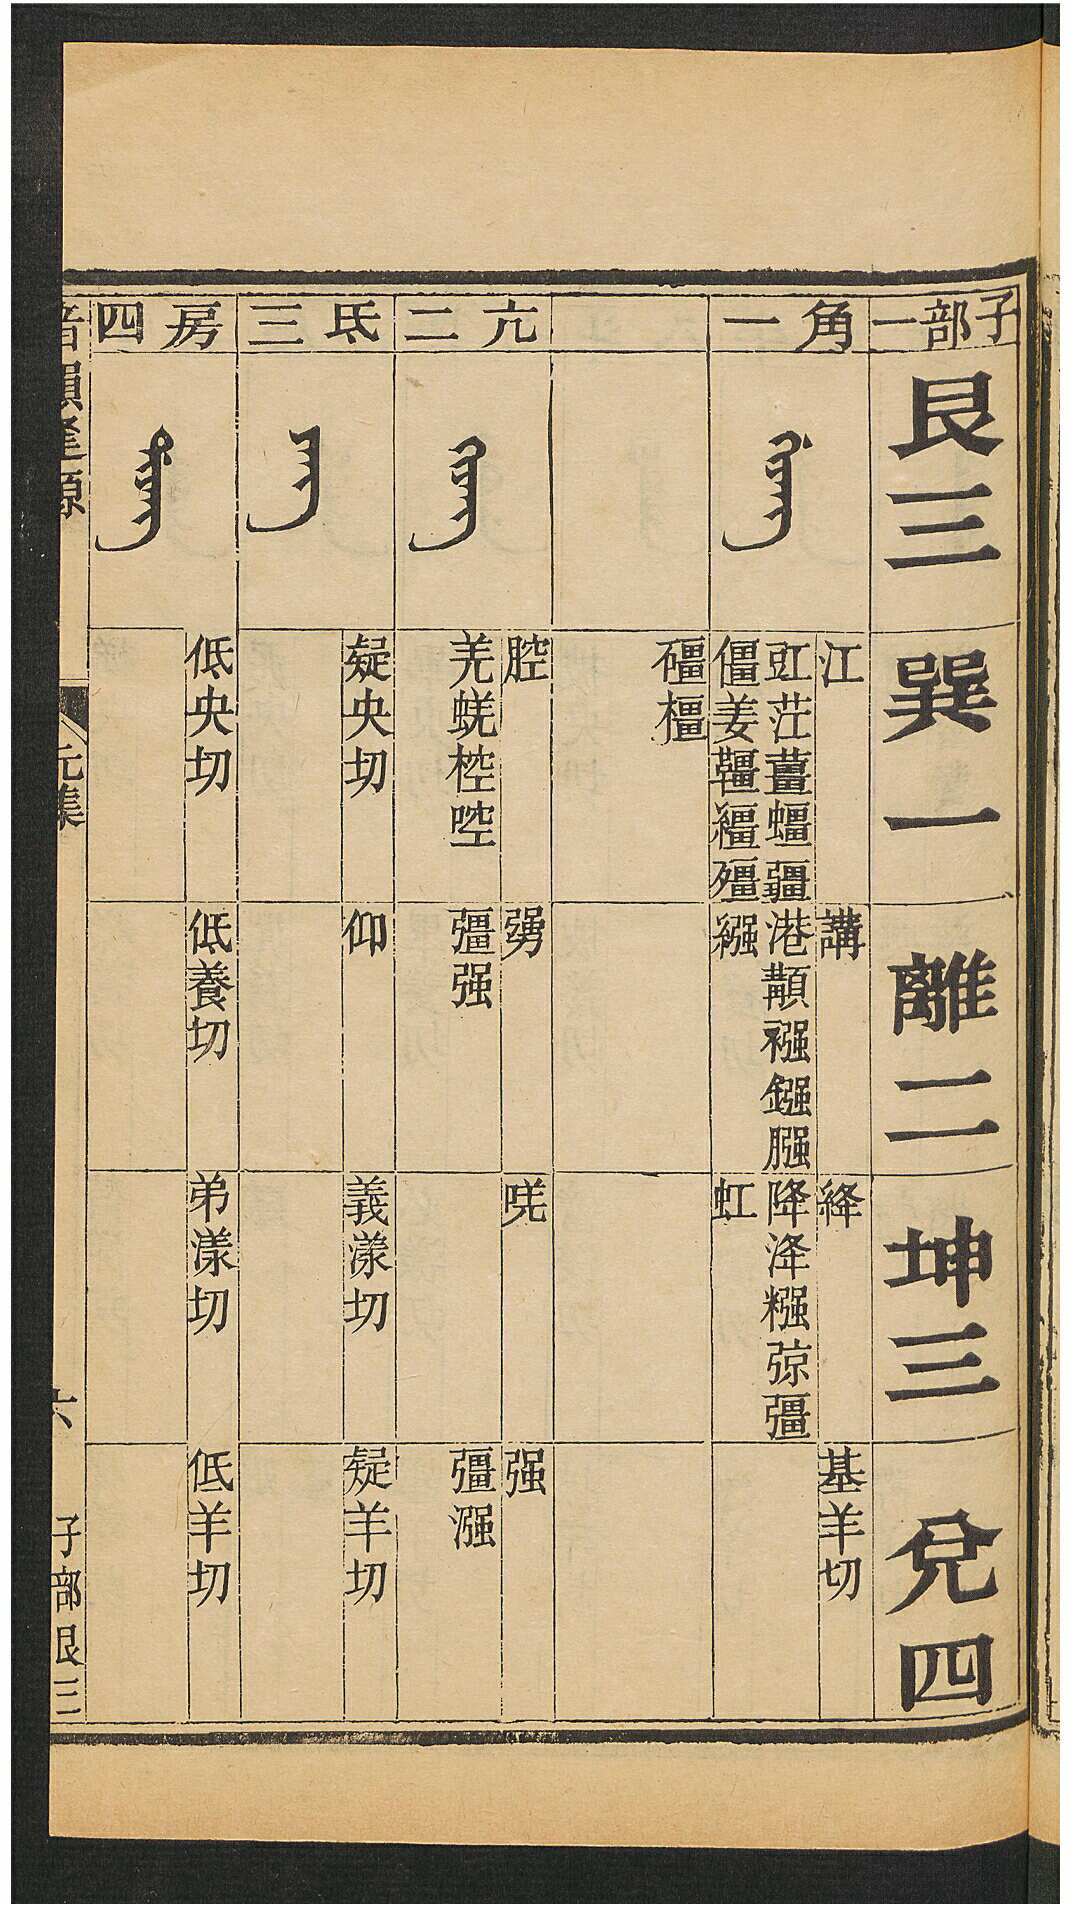 子部一
艮三
巽一
離二
坤三
兌四
角一
江
豇茳薑蠝疆
僵姜韁繮殭
礓橿
講
港顜襁鏹膙
繈
絳
降洚糨弶彊
虹
基羊切
亢二
腔
羌蜣椌啌
勥
彊强
唴
强
彊漒
氐三
疑央切
仰
義漾切
疑羊切
房四
低央切
低養切
弟漾切
低羊切
音韻逢源
元集
六
子部艮三